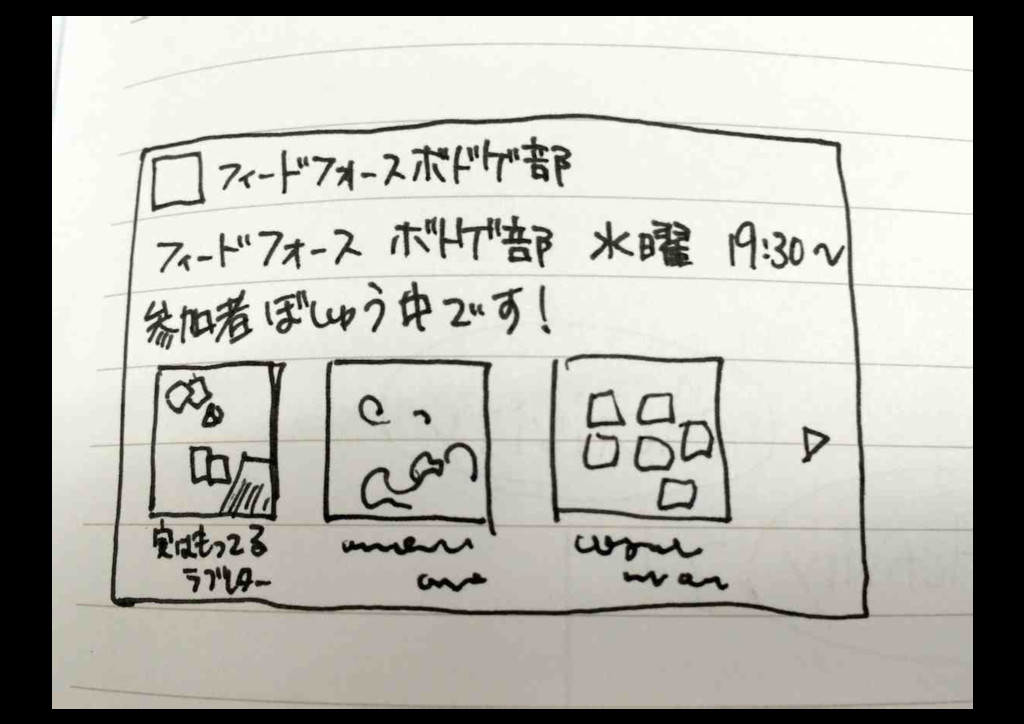 フィードフォースボドゲ部
フィードフォース ボドゲ部 水曜 19:30～
参加者ぼしゅう中です！
実はもってる
ラブレター